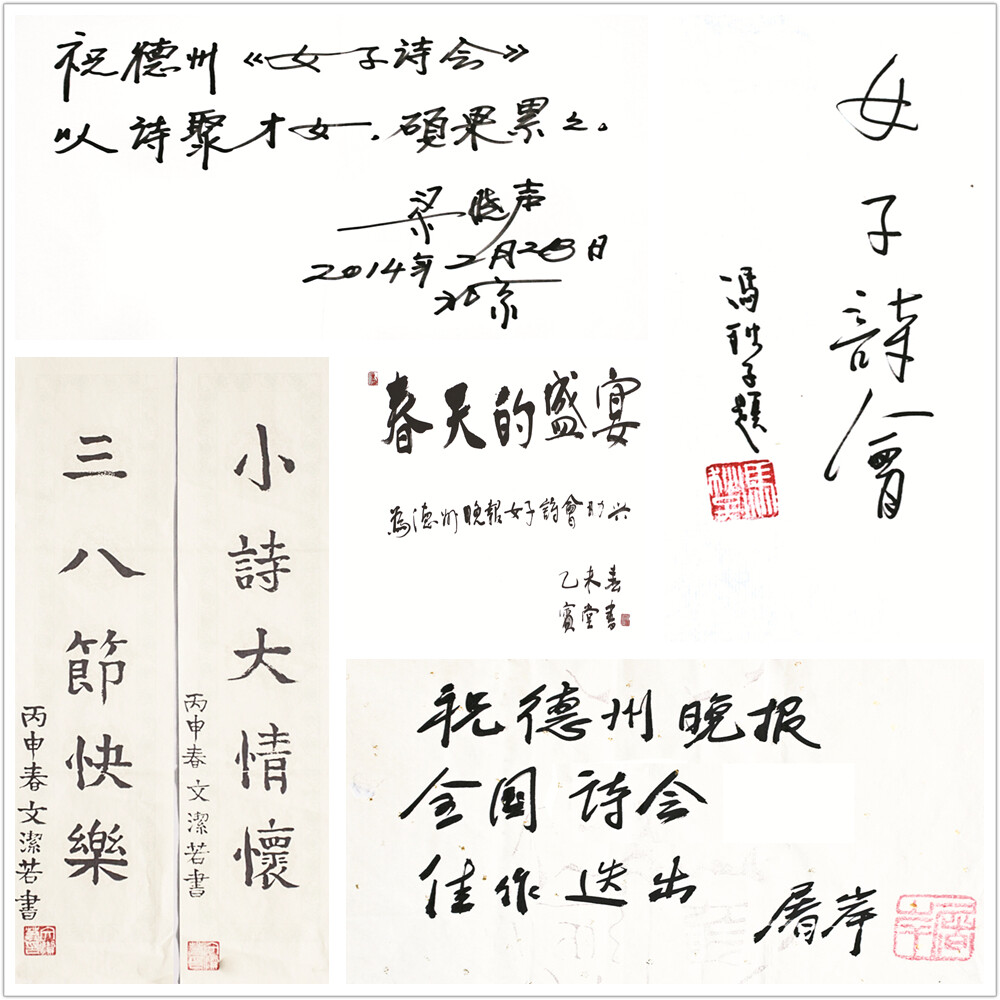 祝德州《女子詩会》
以詩聚才女，碩果累々。
梁晓声
2014年2月28日
北京
女子詩會
馮秋子題
三八節快樂
丙申春文潔若書
小詩大情懷
丙申春文潔若書
春天的盛宴
為德州晚報女子詩會助兴
乙未春
寳堂書
祝德州晚报
全国詩会
佳作迭出
屠岸